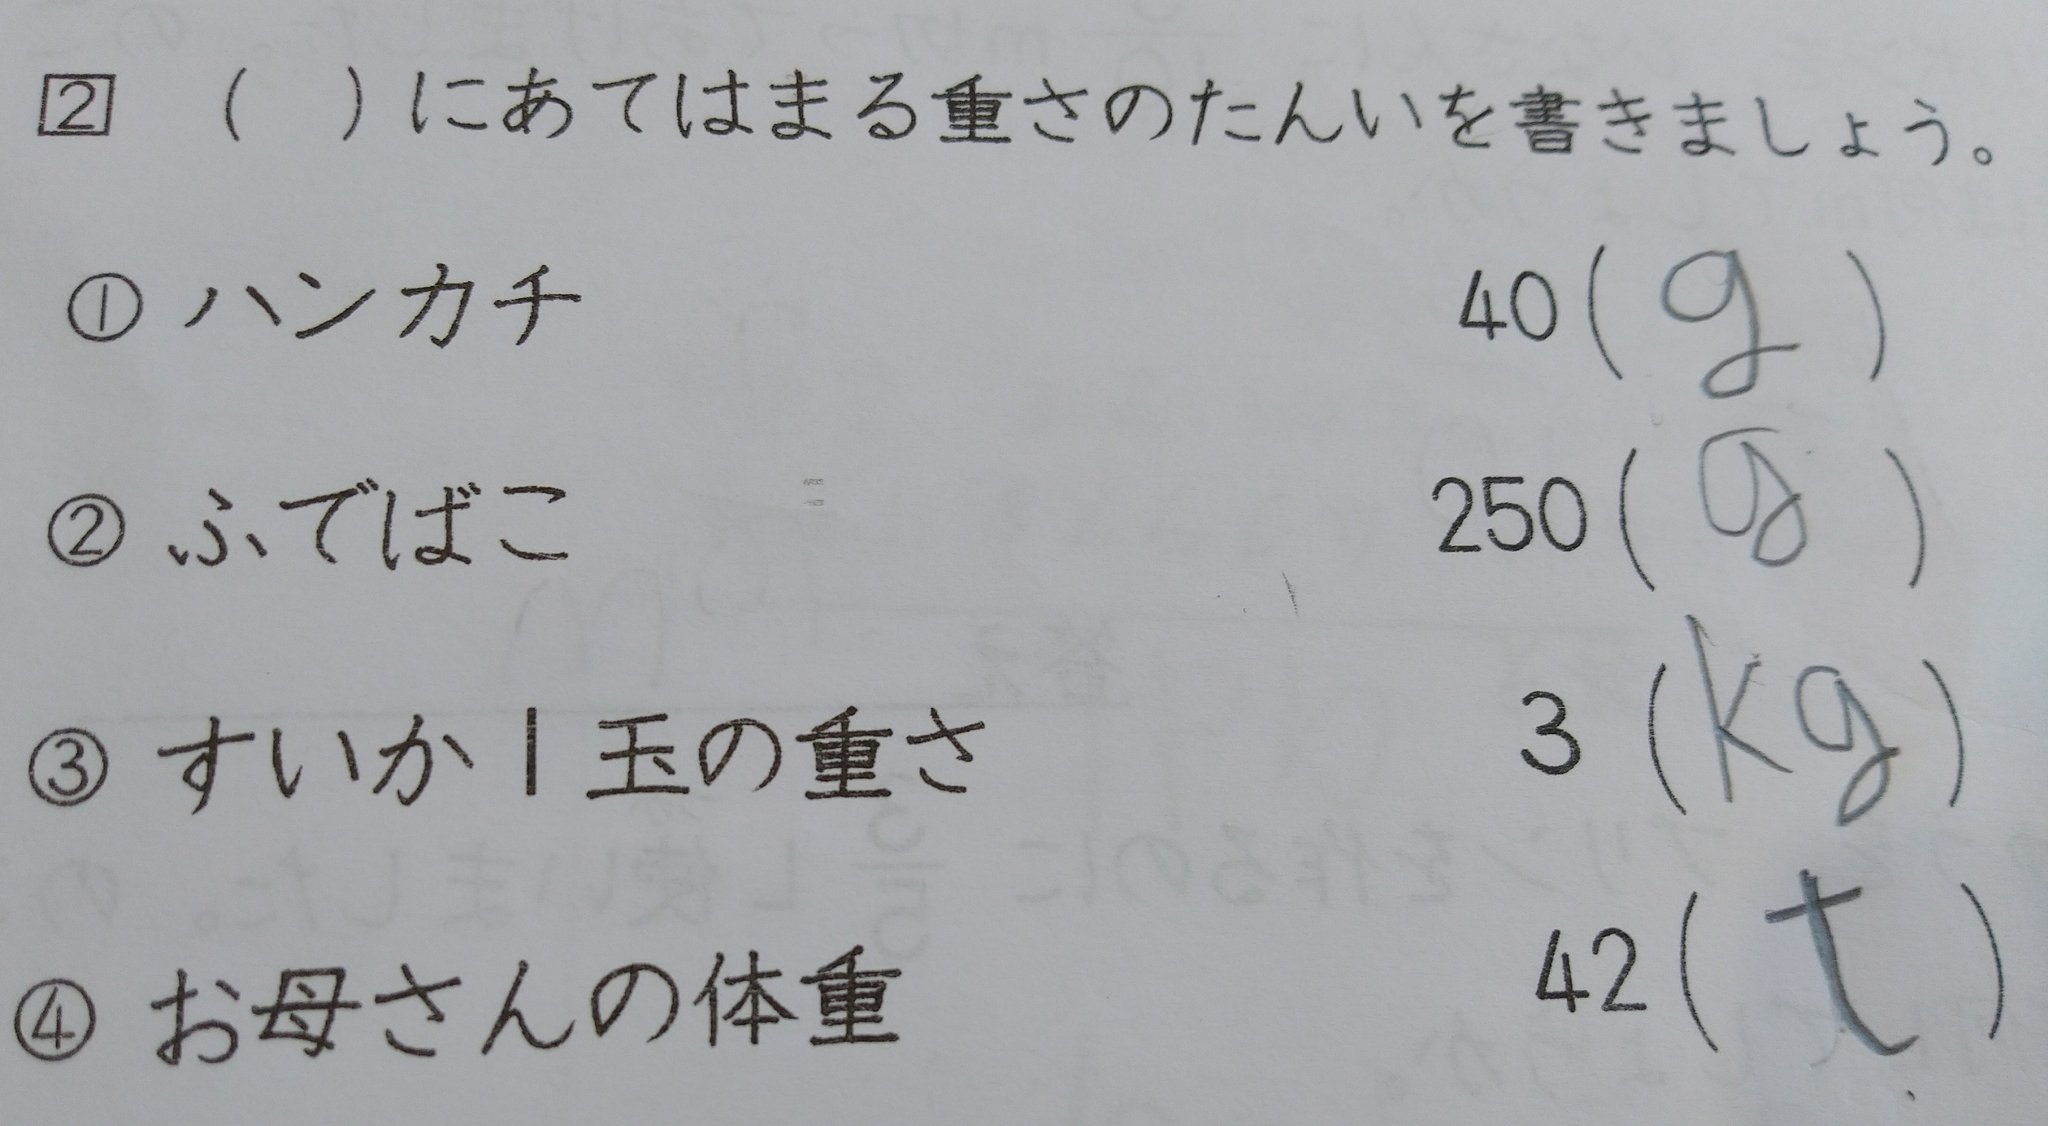 2 （ ）にあてはまる重さのたんいを書きましょう。
① ハンカチ 40( g )
② ふでばこ 250( g )
③ すいか1玉の重さ 3 ( kg )
④ お母さんの体重 42( t )